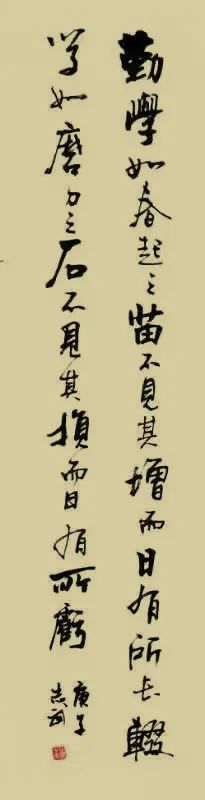 勤學如春起之苗不見其增而日有所长輟
学如磨刀之石不見其損而日有所虧
庚子